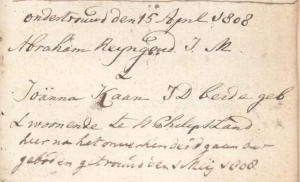 ondertrouwd den 15 April 1808
Abraham Reyngoud J. M.
&
Joanna Kaan J D beide geb
& woonende te St Philipsland
hier na het onverhinderd gaan der
geboden getrouwd den 1 Meij 1808